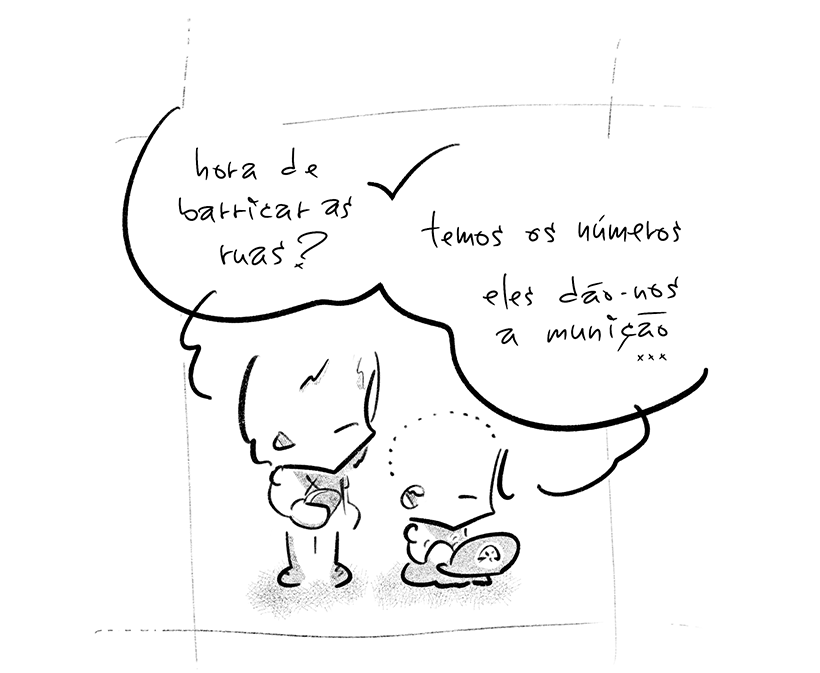 hora de
barricar as
ruas?
temos os números
eles dão-nos
a munição
xxx